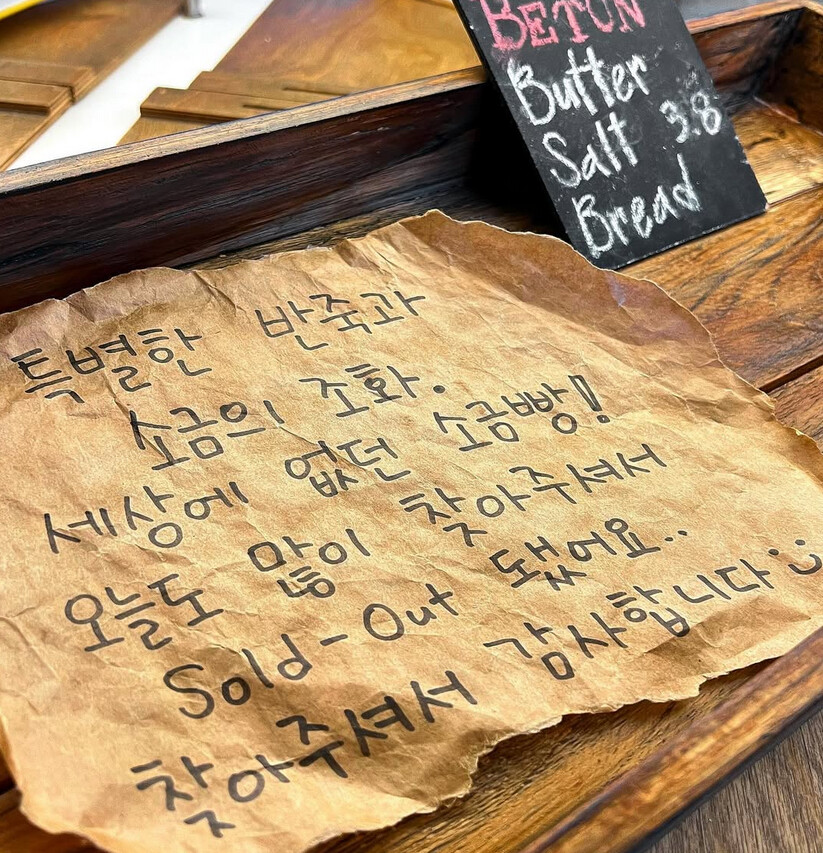 BETON
Butter
Salt 3.8
Bread
특별한 반죽과
소금의 조화.
세상에 없던 소금빵!
오늘도 많이 찾아주셔서
Sold-Out 됐어요..
찾아주셔서 감사합니다 :)